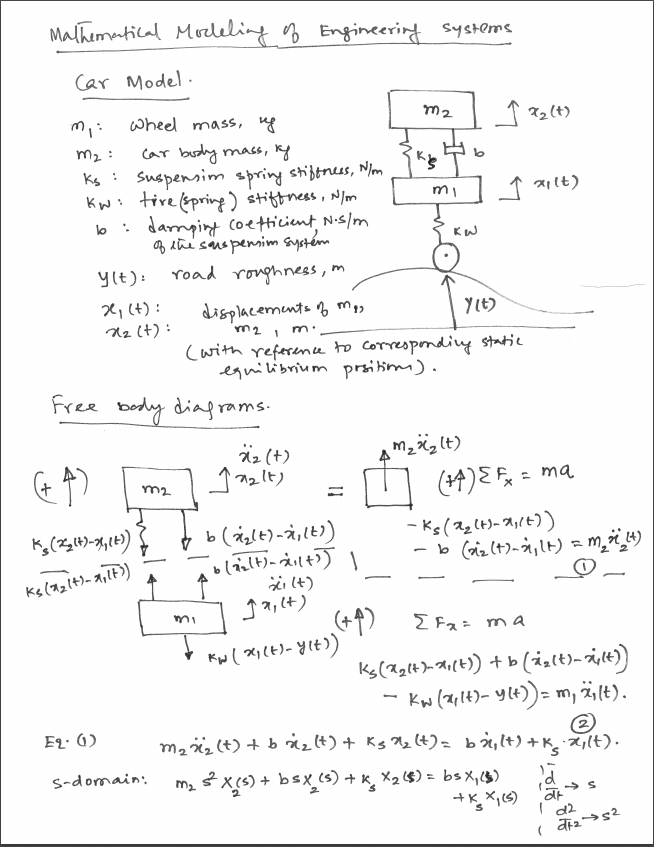 Mathematical Modeling of Engineering systems
Car Model.
m₁: wheel mass, kg
m₂: car body mass, kg
Ks: suspension spring stiffness, N/m
Kw: tire (spring) stiffness, N/m
b: damping coefficient, N·s/m
of the suspension system
y(t): road roughness, m
x₁(t): displacements of m₁,
x₂(t): m₂, m.
(with reference to corresponding static
equilibrium positions).
m₂
x₂(t)
Ks
b
m₁
x₁(t)
Kw
y(t)
Free body diagrams.
(+↑)
m₂
ẍ₂(t)
x₂(t)
=
m₂ẍ₂(t)
(+↑) ΣFₓ = ma
Ks(x₂(t)-x₁(t))
b(ẋ₂(t)-ẋ₁(t))
-Ks(x₂(t)-x₁(t))
- b (ẋ₂(t)-ẋ₁(t)) = m₂ẍ₂(t)
①
Ks(x₂(t)-x₁(t))
b(ẋ₂(t)-ẋ₁(t))
ẍ₁(t)
x₁(t)
m₁
Kw(x₁(t)-y(t))
(+↑) ΣFₓ = ma
Ks(x₂(t)-x₁(t)) + b(ẋ₂(t)-ẋ₁(t))
- Kw(x₁(t)-y(t)) = m₁ẍ₁(t).
②
Eq. (1) m₂ẍ₂(t) + bẋ₂(t) + Ksx₂(t) = bẋ₁(t) + Ks·x₁(t).
s-domain: m₂s²X₂(s) + bsX₂(s) + KsX₂(s) = bsX₁(s)
+ KsX₁(s)
d/dt → s
d2/dt2 → s²